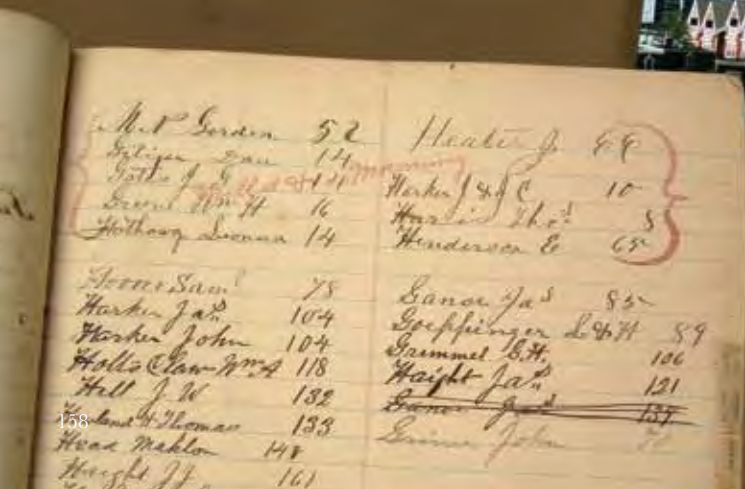 M. N Gorden 52
Dan 14
Gotts J G 14
Green Wm H 16
14
Hoover Saml 78
Harker Jas 104
Harker John 104
Hollis Claw Wm A 118
Hall J W 132
H Thomas 133
Head Mahlon 148
Height JJ 161
158
Heater J 66
Harker J & C 10
Harris Thos 5
Henderson E 65
Ganoe Jas 85
Goeppinger L & H 89
Grimmel E.H. 106
Haight Jas 121
Ganoe Jas 137
Grime John